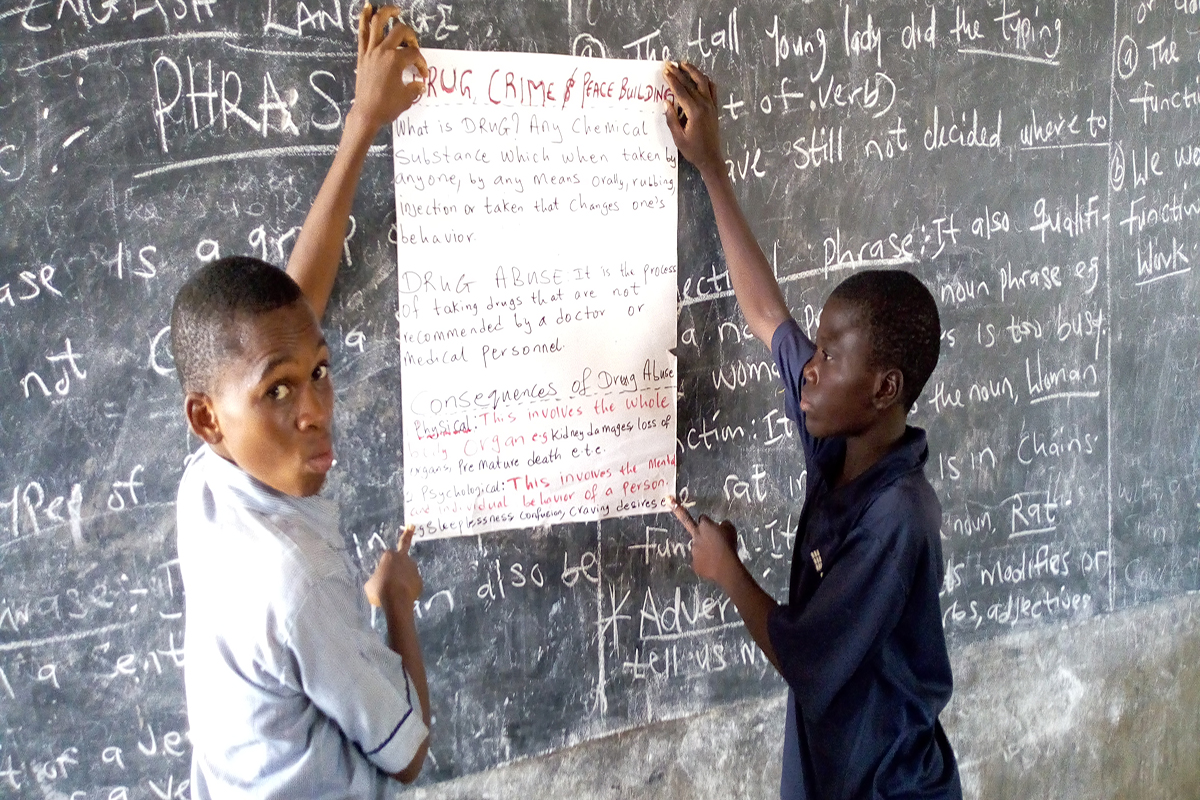 ENGLISH LANGUAGE
PHRAS
is a
not
Types of
also be
DRUG, CRIME & PEACE BUILDING
What is DRUG? Any Chemical
Substance which when taken by
anyone, by any means orally, rubbing,
injection or taken that changes one's
behavior.
DRUG ABUSE: It is the process
of taking drugs that are not
recommended by a doctor or
medical personnel.
Consequences of Drug Abuse
Physical: This involves the whole
body organ e.g Kidney damages, loss of
organs, Premature death e.t.c.
2. Psychological: This involves the mental
and individual behavior of a person.
eg Sleeplessness, confusion, craving desires e
(a) The tall young lady did the typing
t of verb)
ave still not decided where to
phrase: It also qualifi-
noun phrase eg
is too busy.
woma the noun, Woman
nction: It
rat in is in chains.
Func : It noun, Rat
* Adver modifies or
bs, adjectives
tell us
(a) The
functi
(b) We wo
function
Work